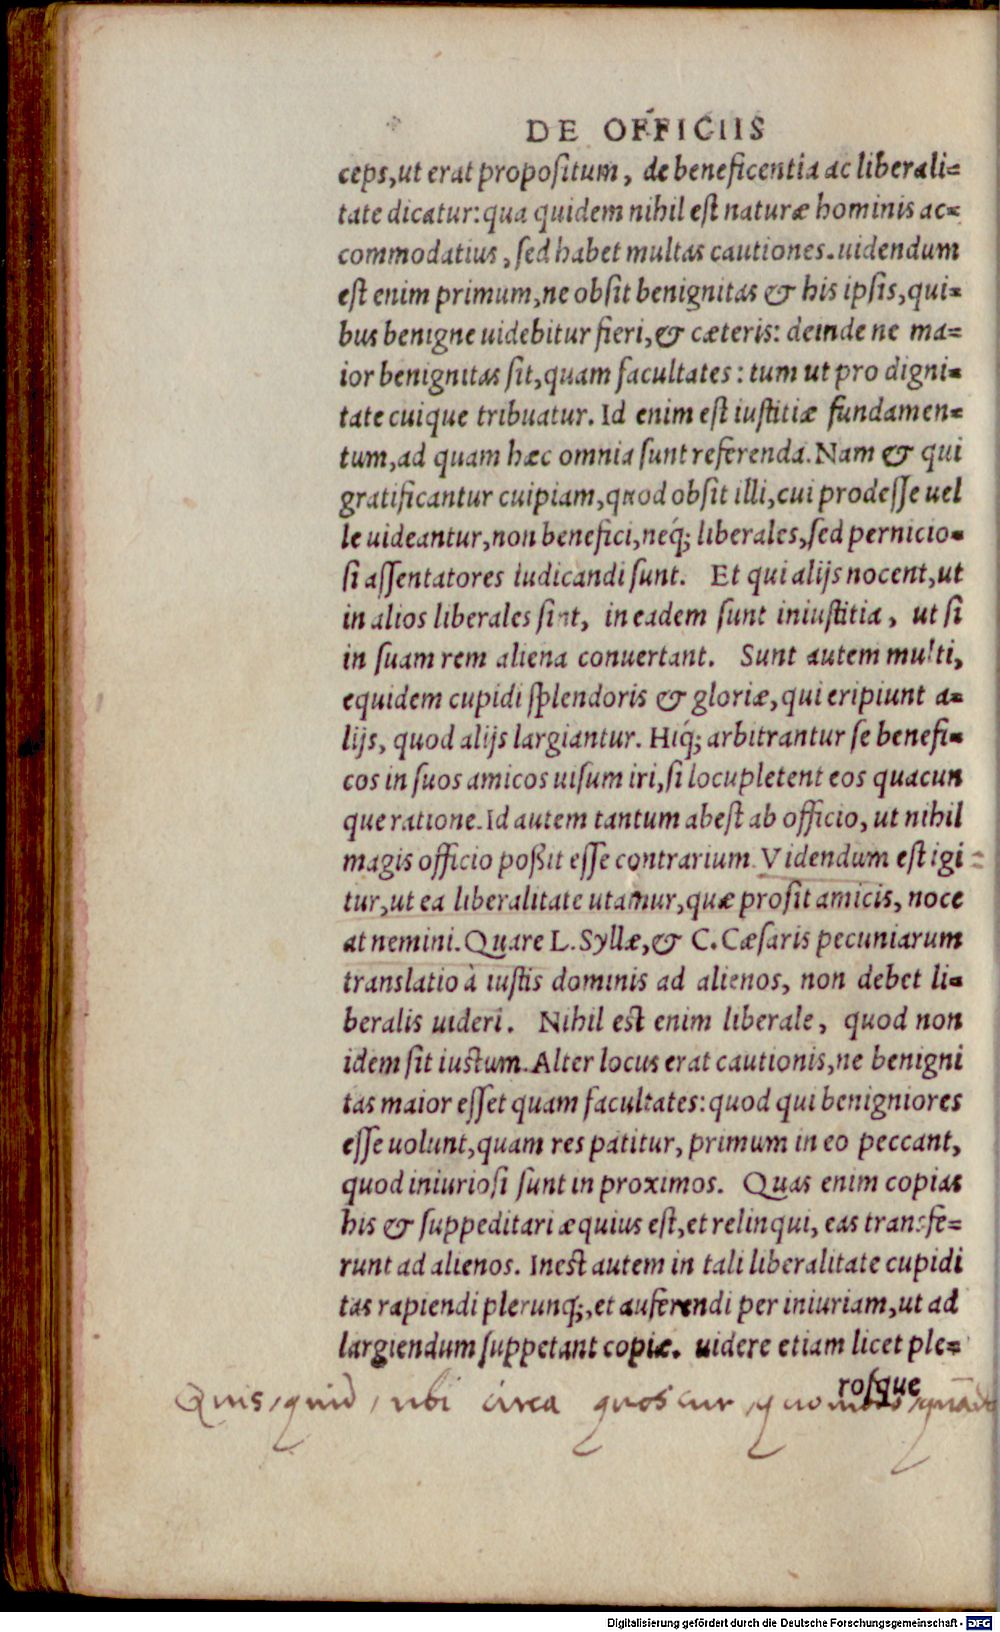 DE OFFICIIS
ceps, ut erat propositum, de beneficentia ac liberali=
tate dicatur: qua quidem nihil est naturæ hominis ac=
commodatius, sed habet multas cautiones. uidendum
est enim primum, ne obsit benignitas & his ipsis, qui=
bus benigne uidebitur fieri, & cæteris: deinde ne ma=
ior benignitas sit, quam facultates: tum ut pro digni=
tate cuique tribuatur. Id enim est iustitiæ fundamen=
tum, ad quam hæc omnia sunt referenda. Nam & qui
gratificantur cuipiam, quod obsit illi, cui prodesse uel
le uideantur, non benefici, neq́; liberales, sed pernicio=
si assentatores iudicandi sunt. Et qui alijs nocent, ut
in alios liberales sint, in eadem sunt iniustitia, ut si
in suam rem aliena conuertant. Sunt autem multi,
equidem cupidi splendoris & gloriæ, qui eripiunt a=
lijs, quod alijs largiantur. Hiq́; arbitrantur se benefi=
cos in suos amicos uisum iri, si locupletent eos quacun
que ratione. Id autem tantum abest ab officio, ut nihil
magis officio poßit esse contrarium. Videndum est igi =
tur, ut ea liberalitate utamur, quæ prosit amicis, noce
at nemini. Quare L. Syllæ, & C. Cæsaris pecuniarum
translatio à iustis dominis ad alienos, non debet li=
beralis uideri. Nihil est enim liberale, quod non
idem sit iustum. Alter locus erat cautionis, ne benigni
tas maior esset quam facultates: quod qui benigniores
esse uolunt, quam res patitur, primum in eo peccant,
quod iniuriosi sunt in proximos. Quas enim copias
his & suppeditari æquius est, et relinqui, eas transfe=
runt ad alienos. Inest autem in tali liberalitate cupidi
tas rapiendi plerunq́;, et auferendi per iniuriam, ut ad
largiendum suppetant copiæ. uidere etiam licet ple=
rosque
Quis, quid, ubi circa quos cur, quomodo, quādo
Digitalisierung gefördert durch die Deutsche Forschungsgemeinschaft - DFG